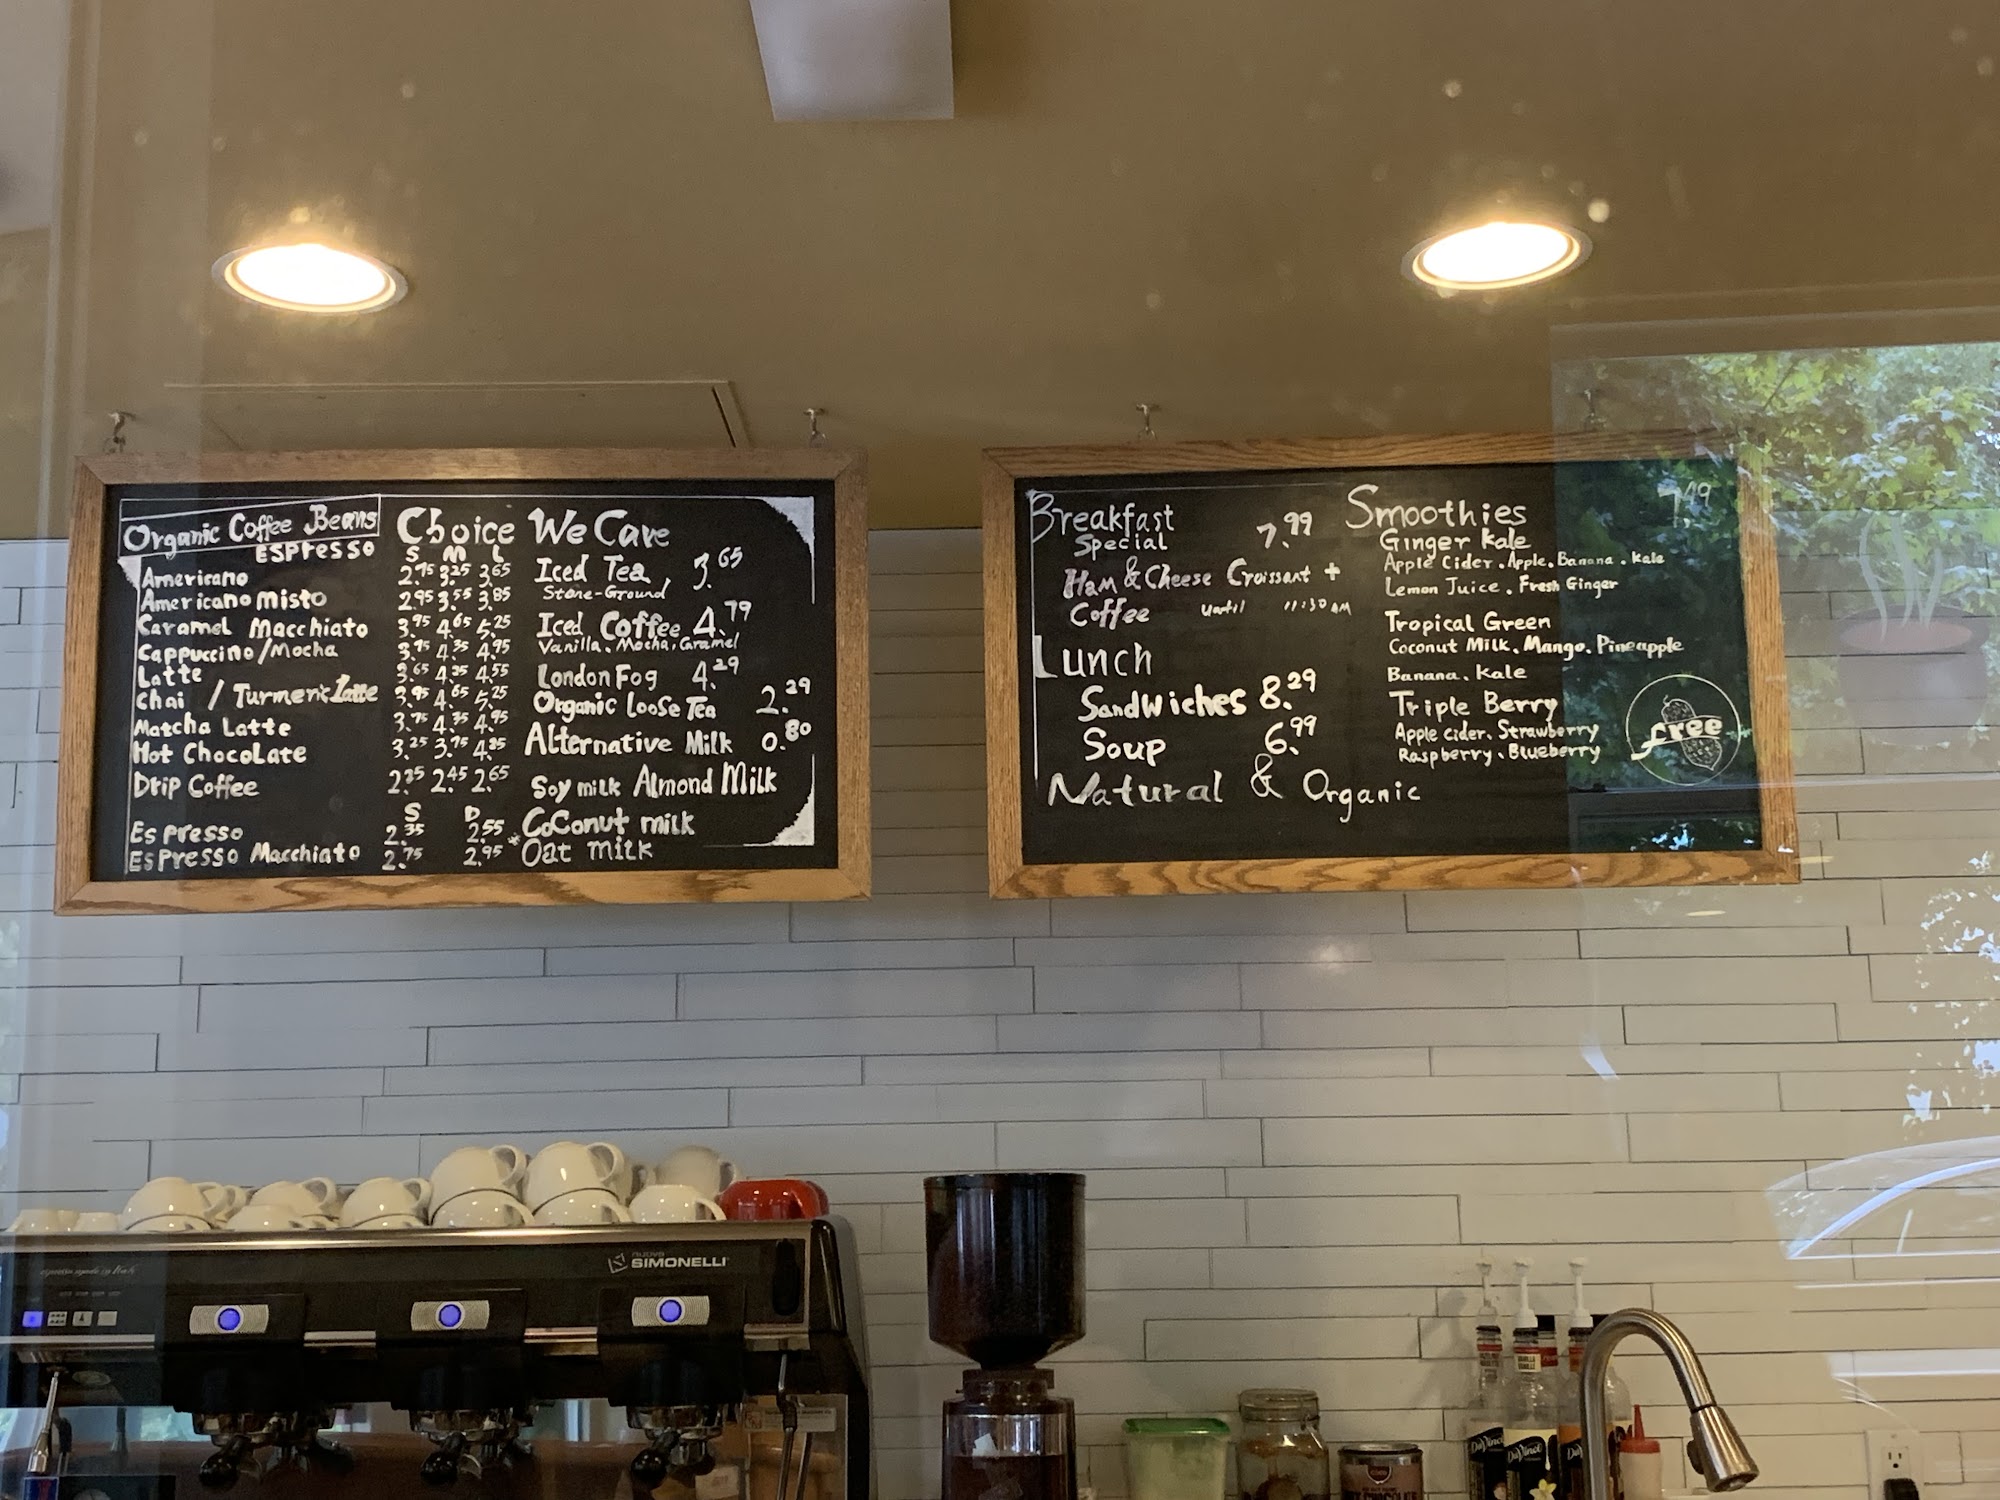 Organic Coffee Beans Choice We Care
ESPresso S M L
Americano 2.75 3.25 3.65
Americano Misto 2.95 3.55 3.85
Caramel Macchiato 3.95 4.65 5.25
Cappuccino/Mocha 3.75 4.35 4.95
Latte 3.65 4.35 4.55
Chai / Turmeric Latte 3.95 4.65 5.25
Matcha Latte 3.75 4.35 4.95
Hot Chocolate 3.25 3.75 4.25
Drip Coffee 2.25 2.45 2.65
S D
Espresso 2.35 2.55
Espresso Macchiato 2.75 2.95
Iced Tea 3.65
Stone-Ground
Iced Coffee 4.79
Vanilla. Mocha. Caramel
London Fog 4.29
Organic Loose Tea 2.29
Alternative Milk 0.80
Soy milk Almond Milk
Coconut milk
*Oat milk
Breakfast
Special 7.99
Ham & Cheese Croissant +
Coffee until 11:30 AM
Lunch
Sandwiches 8.29
Soup 6.99
Natural & Organic
Smoothies 7.49
Ginger Kale
Apple Cider. Apple. Banana. Kale
Lemon Juice. Fresh Ginger
Tropical Green
Coconut Milk. Mango. Pineapple
Banana. Kale
Triple Berry
Apple cider. Strawberry
Raspberry. Blueberry
free
nuova
SIMONELLI
DaVinci
DaVinci